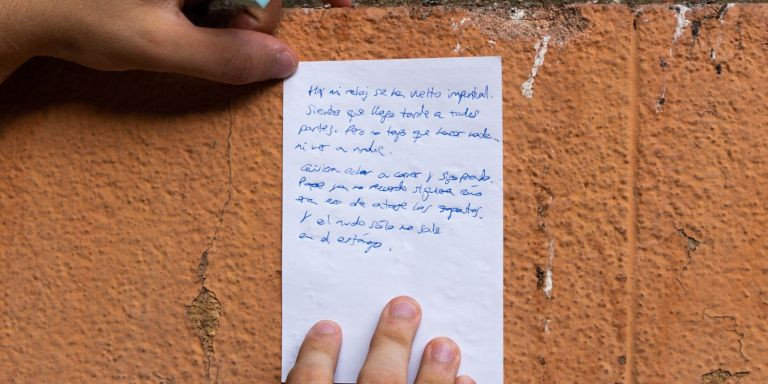 Hoy mi reloj se ha vuelto impuntual.
Siento que llego tarde a todas
partes. Pero no tengo que hacer nada
ni ver a nadie.
Quisiera echar a correr y
ya no recuerdo siquiera cómo
era eso de atarse los zapatos.
Y el nudo sólo me sale
en el estómago.